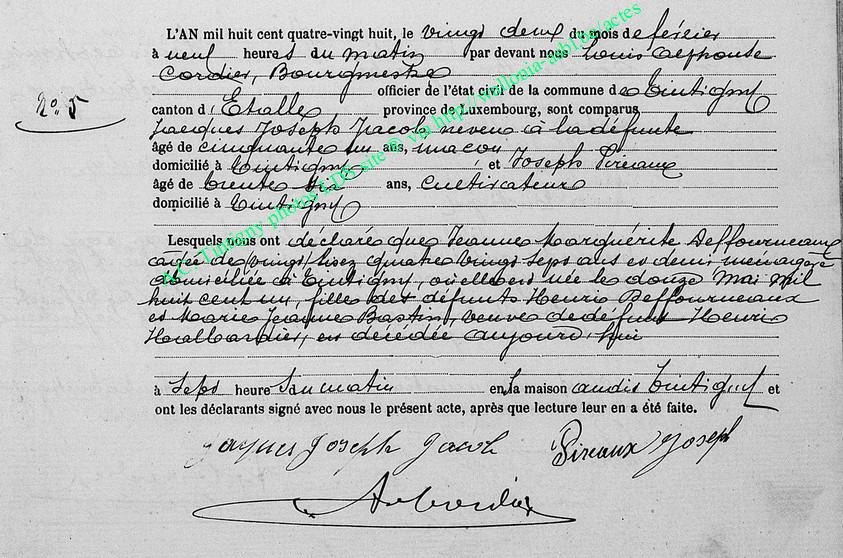 L'AN mil huit cent quatre-vingt huit, le vingt deux du mois de février
à neuf heures du matin par devant nous Louis Alphonse
Cordier, Bourgmestre
officier de l'état civil de la commune de Tintigny
N° 5
canton d'Etalle province de Luxembourg, sont comparus
Jacques Joseph Jacob neveu à la défunte
âgé de cinquante un ans, maçon
domicilié à Tintigny et Joseph Pireaux
âgé de trente six ans, Cultivateur
domicilié à Tintigny
Lesquels nous ont déclaré que Jeanne Marguérite Deffourneaux
agée de vingt lisez quatre vingt sept ans et demi, ménagère
domiciliée à Tintigny, où elle est née le douze Mai mil
huit cent un, fille des défunts Henri Deffourneaux
et Marie Jeanne Bastin, veuve de défunt Henri
Hallbardier, est décédée aujourd'hui
à Sept heures du matin en sa maison audit Tintigny et
ont les déclarants signé avec nous le présent acte, après que lecture leur en a été faite.
Jaques Joseph Jacob Pireaux Joseph
A.C. Tintigny photos LDS site © via http://wallonia-asbl.be/actes